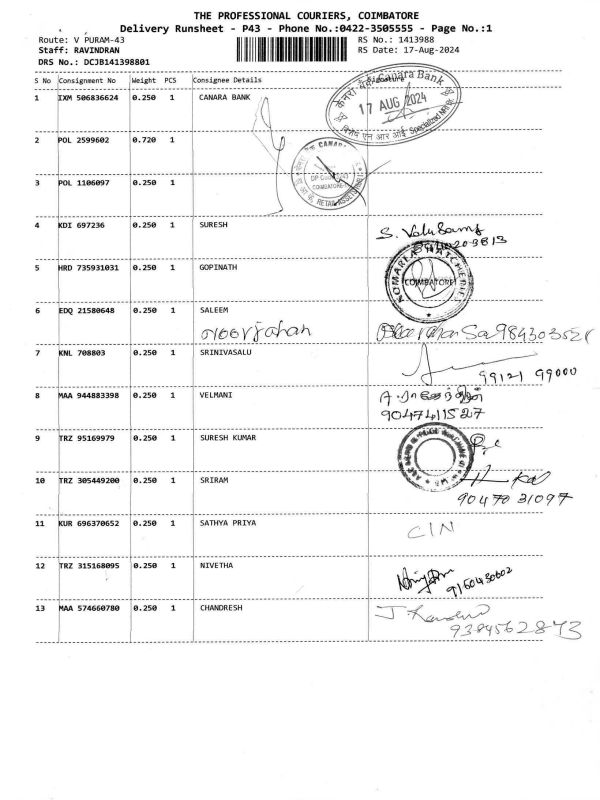 THE PROFESSIONAL COURIERS, COIMBATORE
Delivery Runsheet - P43 - Phone No.:0422-3505555 - Page No.:1
Route: V PURAM-43 RS No.: 1413988
Staff: RAVINDRAN RS Date: 17-Aug-2024
DRS No.: DCJB141398801
S No Consignment No Weight PCS Consignee Details
Canara Bank
1 IXM 506836624 0.250 1 CANARA BANK
17 AUG 2024
2 POL 2599602 0.720 1
CANARA
3 POL 1106097 0.250 1
COIMBATORE
4 KDI 697236 0.250 1 SURESH
5 HRD 735931031 0.250 1 GOPINATH
COIMBATORE
6 EDQ 21580648 0.250 1 SALEEM
7 KNL 708803 0.250 1 SRINIVASALU
99121 99000
8 MAA 944883398 0.250 1 VELMANI
9047411527
9 TRZ 95169979 0.250 1 SURESH KUMAR
10 TRZ 305449200 0.250 1 SRIRAM
90470 31097
11 KUR 696370652 0.250 1 SATHYA PRIYA CIN
12 TRZ 315168095 0.250 1 NIVETHA
9160430602
13 MAA 574660780 0.250 1 CHANDRESH
9384562873